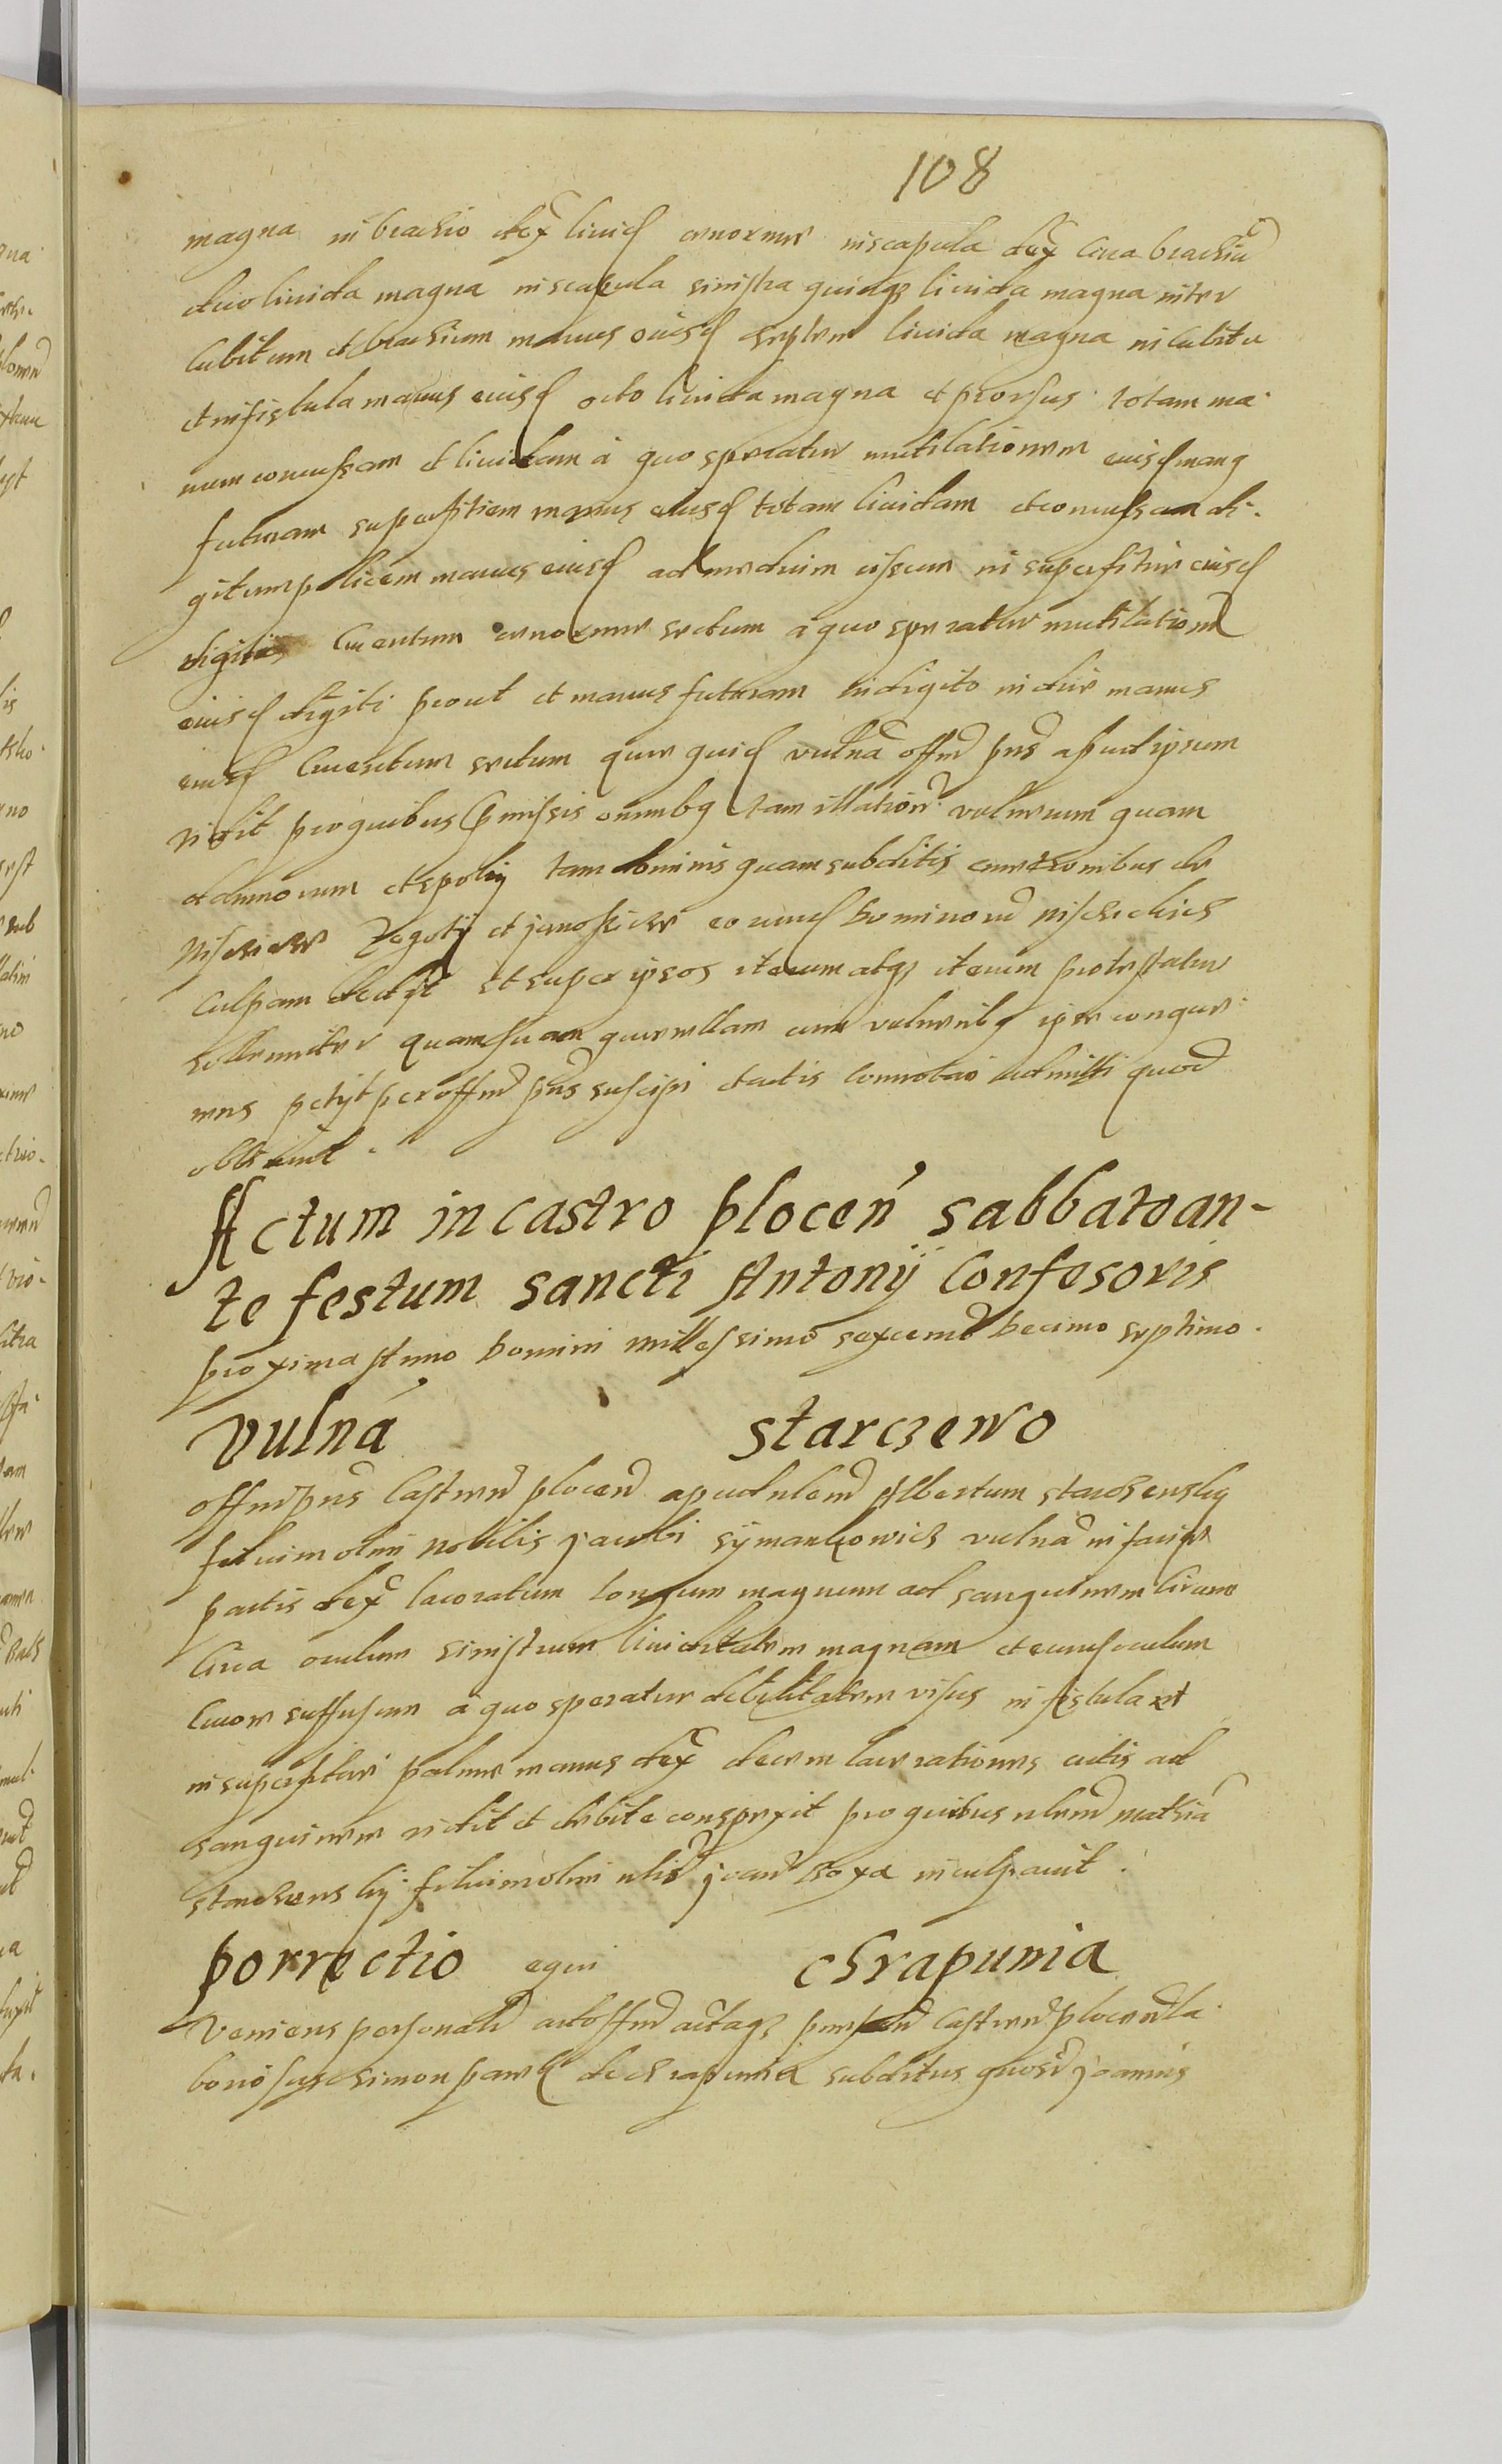 108
magna in brachio dex livid enorme in scapula dex circa brachiu
duo livida magna in scapula sinistra quinqz livida magna inter
Cubitum et brachium manus eiusd septem livida magna in cubitu
et in fistula manus eiusd octo livida magna et prorsus totam ma
num concussam et lividam a quo speratur mutilationem eiusd manq
futuram superfitiem manus eiusd totam lividam et concussam di-
gitum policem manus eiusd ad medium cissum in superfitie eiusd
digiti Cruentum enorme sectum a quo speratur mutilatione
eiusd digiti prout et manus futuram in digito indice manus
eiusd Cruentum sectum que quid vulna offm pns apud ipsum
vidit pro quibus pmissis omnibq tam illation vulnerum quam
et damnorum et spolij tam dominis quam subditis de
et eorund Dominoru
culpam dedit et super ipsos iterum atqz iterum protestatur
sollenniter quam suam querellam cum vulneribq ipse conque
rens petijt per offm pns suscipi et actis connotari admitti quod
obtinuit.
Actum in castro plocen sabbato an-
te festum sancti Antonij Confesoris
proxima Anno Domini millessimo sexcento Decimo septimo.
Vulna starczewo
offm pns Castren plocen apud nlem Albertum starczewskij
filium olim nobilis jacobi symankowicz vulna in facie
partis dex laceratum longum magnum ad sanguinem
Circa oculum sinistrum lividitatem magnam et eund oculum
livore suffusum a quo speratur debilitatem visus in fistula et
in superfitie palme manus dex decem lacerationes cutis ad
sanguinem vidit et debite conspexit pro quibus nlem mathia
starczewskij filium olim nlis joan inculpavit.
porrectio equi Chrapunia
Veniens personalr ad offm actaqz pnsn Castren plocen la
boriosus simon pawel de Chrapunia subditus gnosi joannis